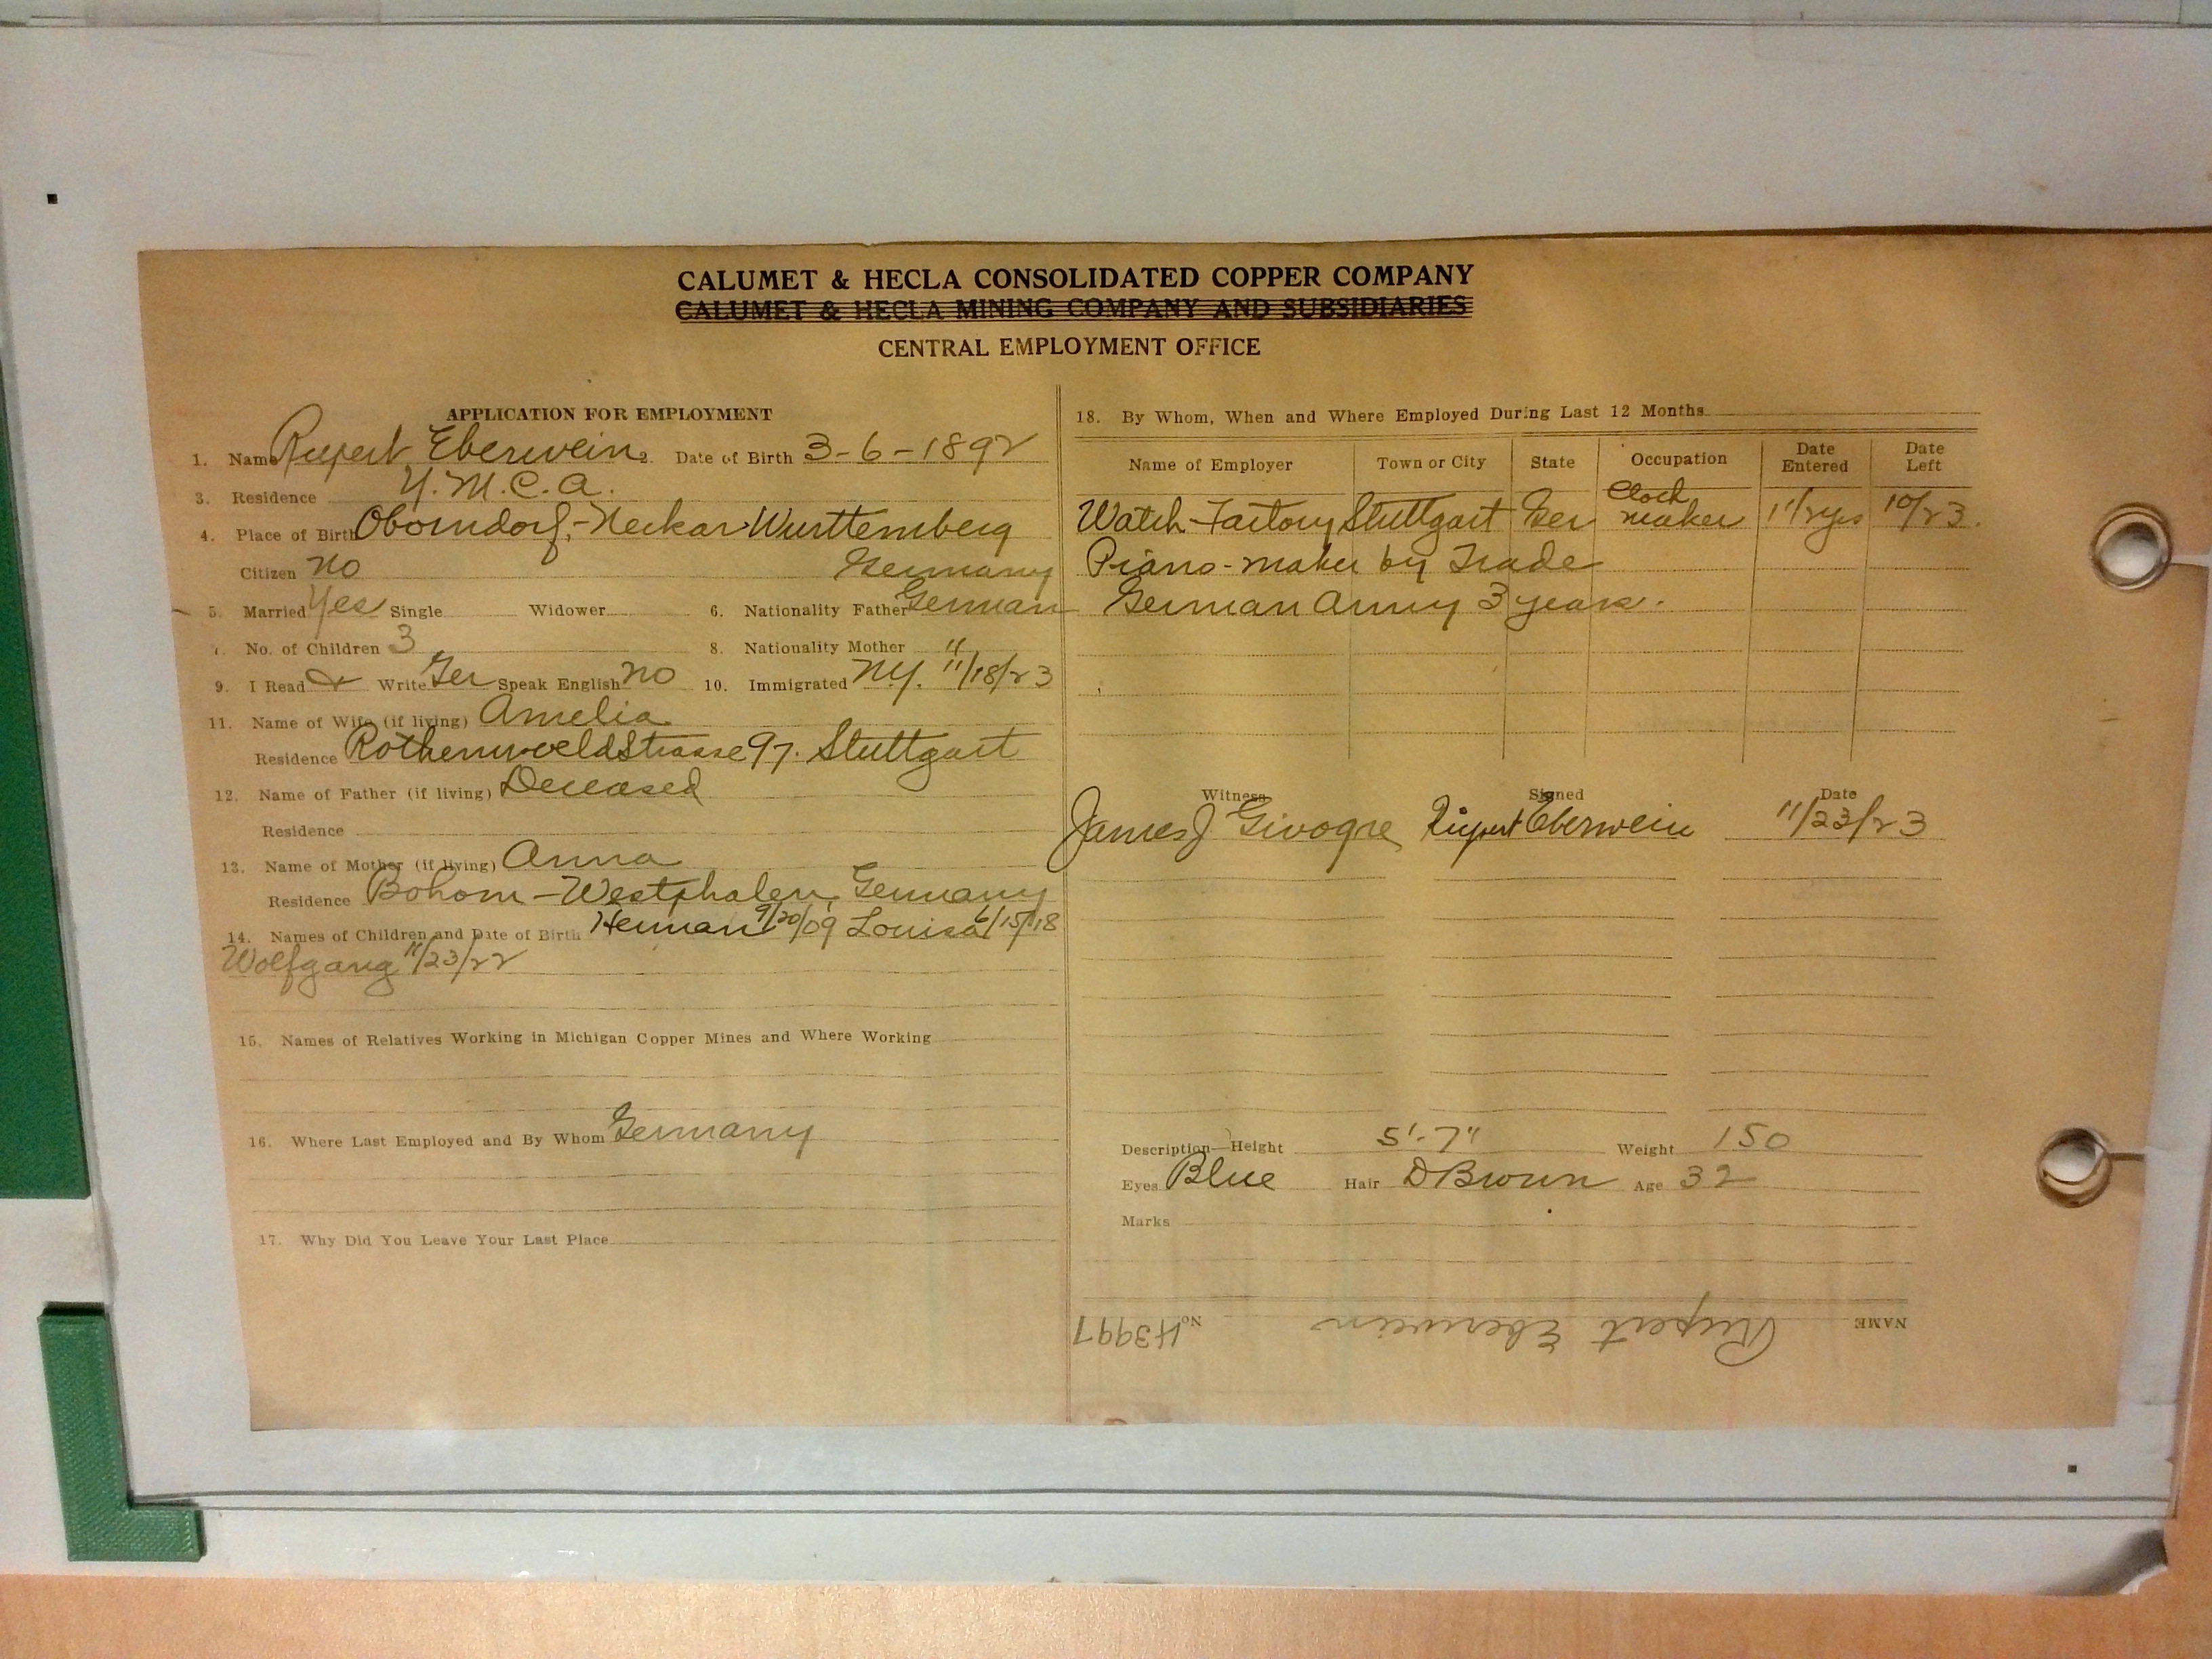 CALUMET & HECLA CONSOLIDATED COPPER COMPANY
CALUMET & HECLA MINING COMPANY AND SUBSIDIARIES
CENTRAL EMPLOYMENT OFFICE
APPLICATION FOR EMPLOYMENT
1. Name Rupert Eberwein 2. Date of Birth 3-6-1892
3. Residence Y.M.C.A.
4. Place of Birth Oborndorf,-Neckar Wurttemberg
Citizen no Germany
5. Married Yes Single Widower 6. Nationality Father German
7. No. of Children 3 8. Nationality Mother "
9. I Read & Write Ger Speak English no 10. Immigrated N.Y. 11/18/23
11. Name of Wife (if living) Amelia
Residence Rothenweldstrasse 97. Stuttgart
12. Name of Father (if living) Deceased
Residence
13. Name of Mother (if living) Anna
Residence Bohom-Westphalen, Germany
14. Names of Children and Date of Birth Herman 9/20/09 Louisa 6/15/18
Wolfgang 11/23/22
15. Names of Relatives Working in Michigan Copper Mines and Where Working
16. Where Last Employed and By Whom Germany
17. Why Did You Leave Your Last Place
18. By Whom, When and Where Employed During Last 12 Months
Name of Employer Town or City State Occupation Date Entered Date Left
Watch-Factory Stuttgart Ger Clock maker 1 1/2 yrs 10/23.
Piano-maker by Trade
German Army 3 years.
Witness Signed Date
James J Givogre Rupert Eberwein 11/23/23
Description—Height 5'-7" Weight 150
Eyes Blue Hair D Brown Age 32
Marks
NAME Rupert Eberwein No. H3997